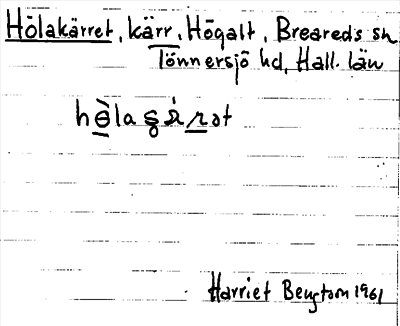 Hölakärret, kärr, Högalt, Breareds sn
Tönnersjö hd, Hall. län
Harriet 1961